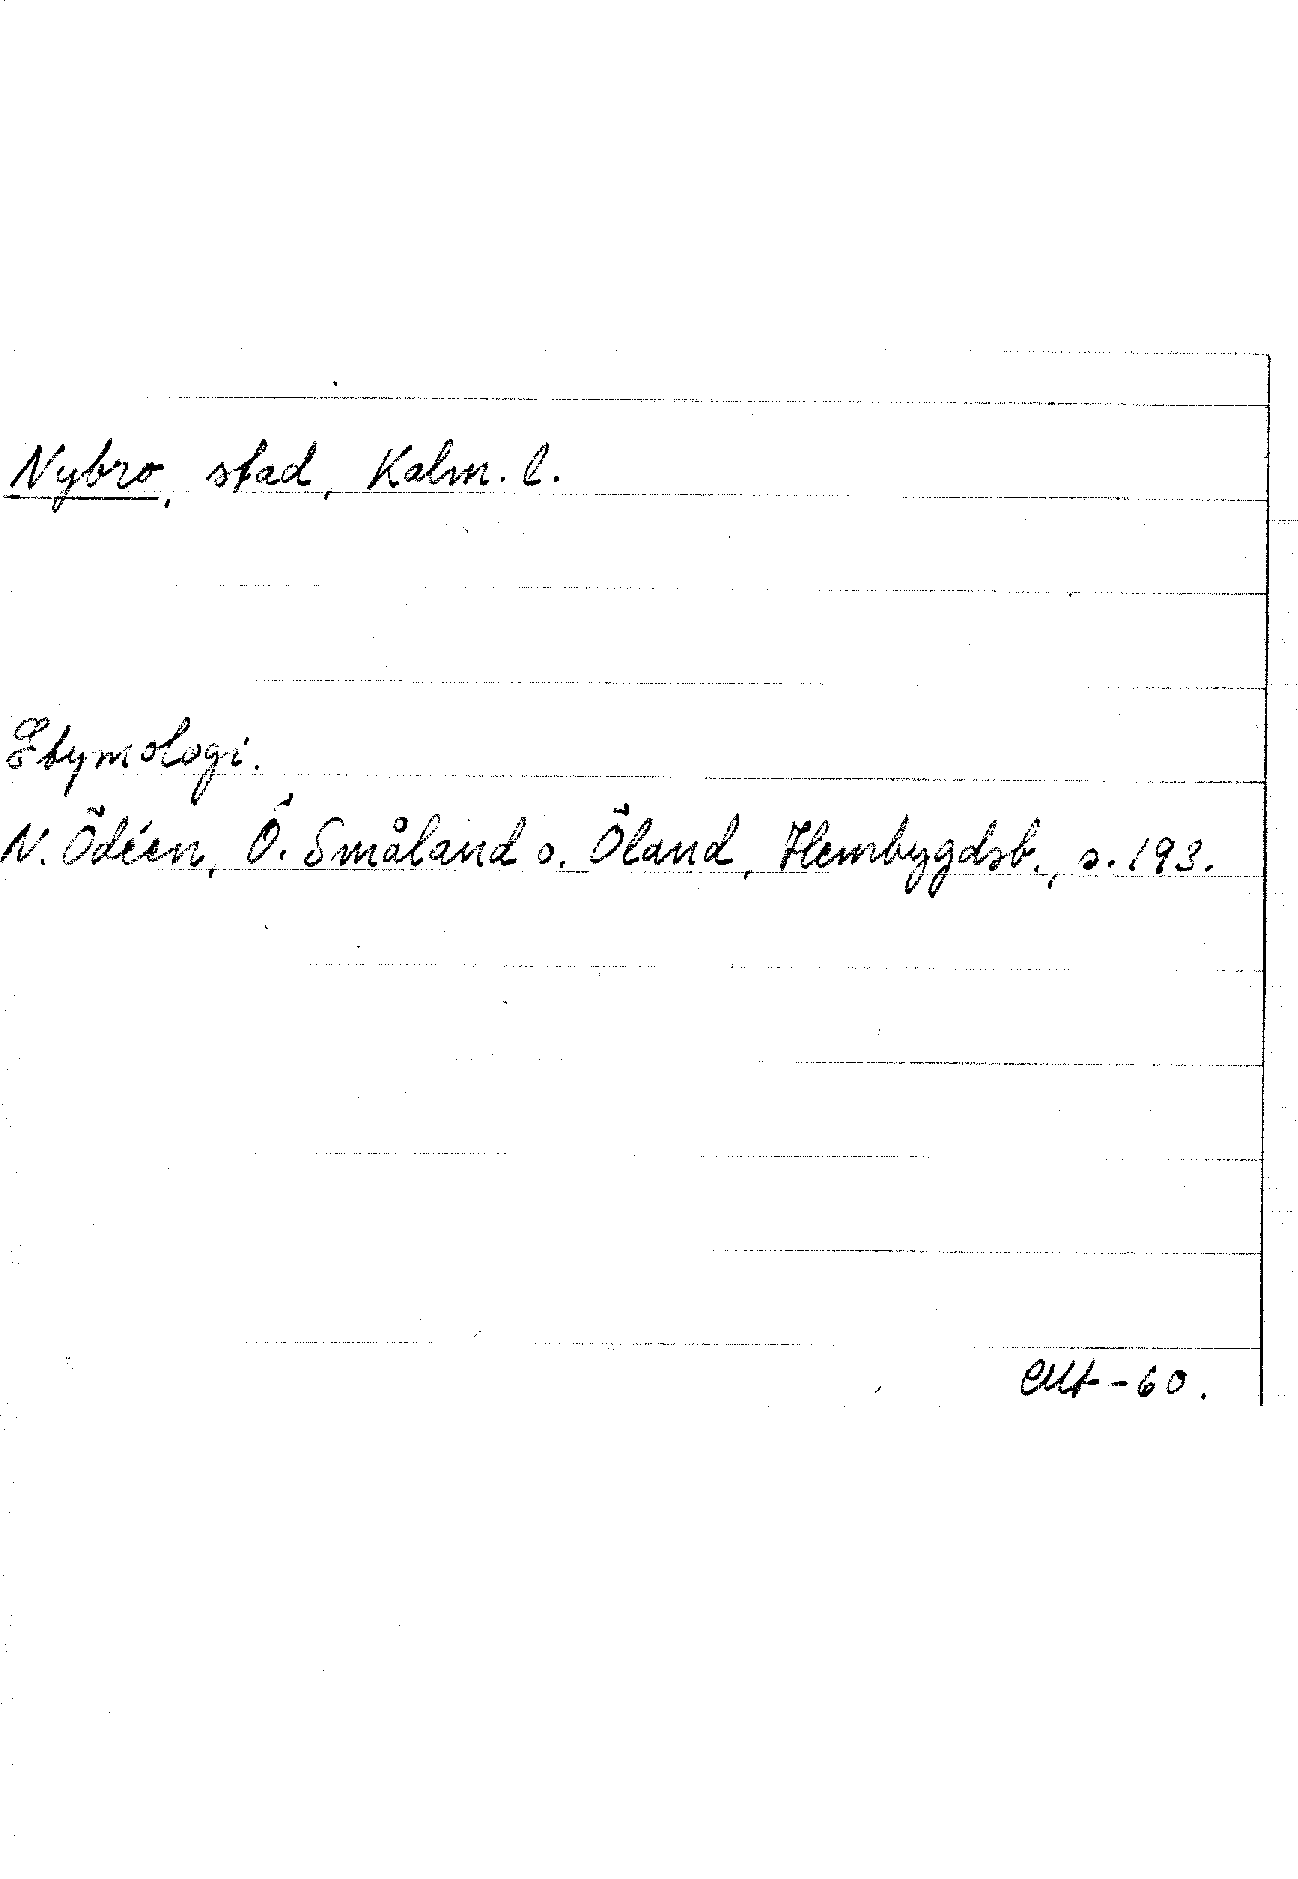 Nybro, stad, Kalm. l.
Etymologi.
N. Ödéen, Ö. Småland o. Öland, Hembygdsb., s. 193.
-60.